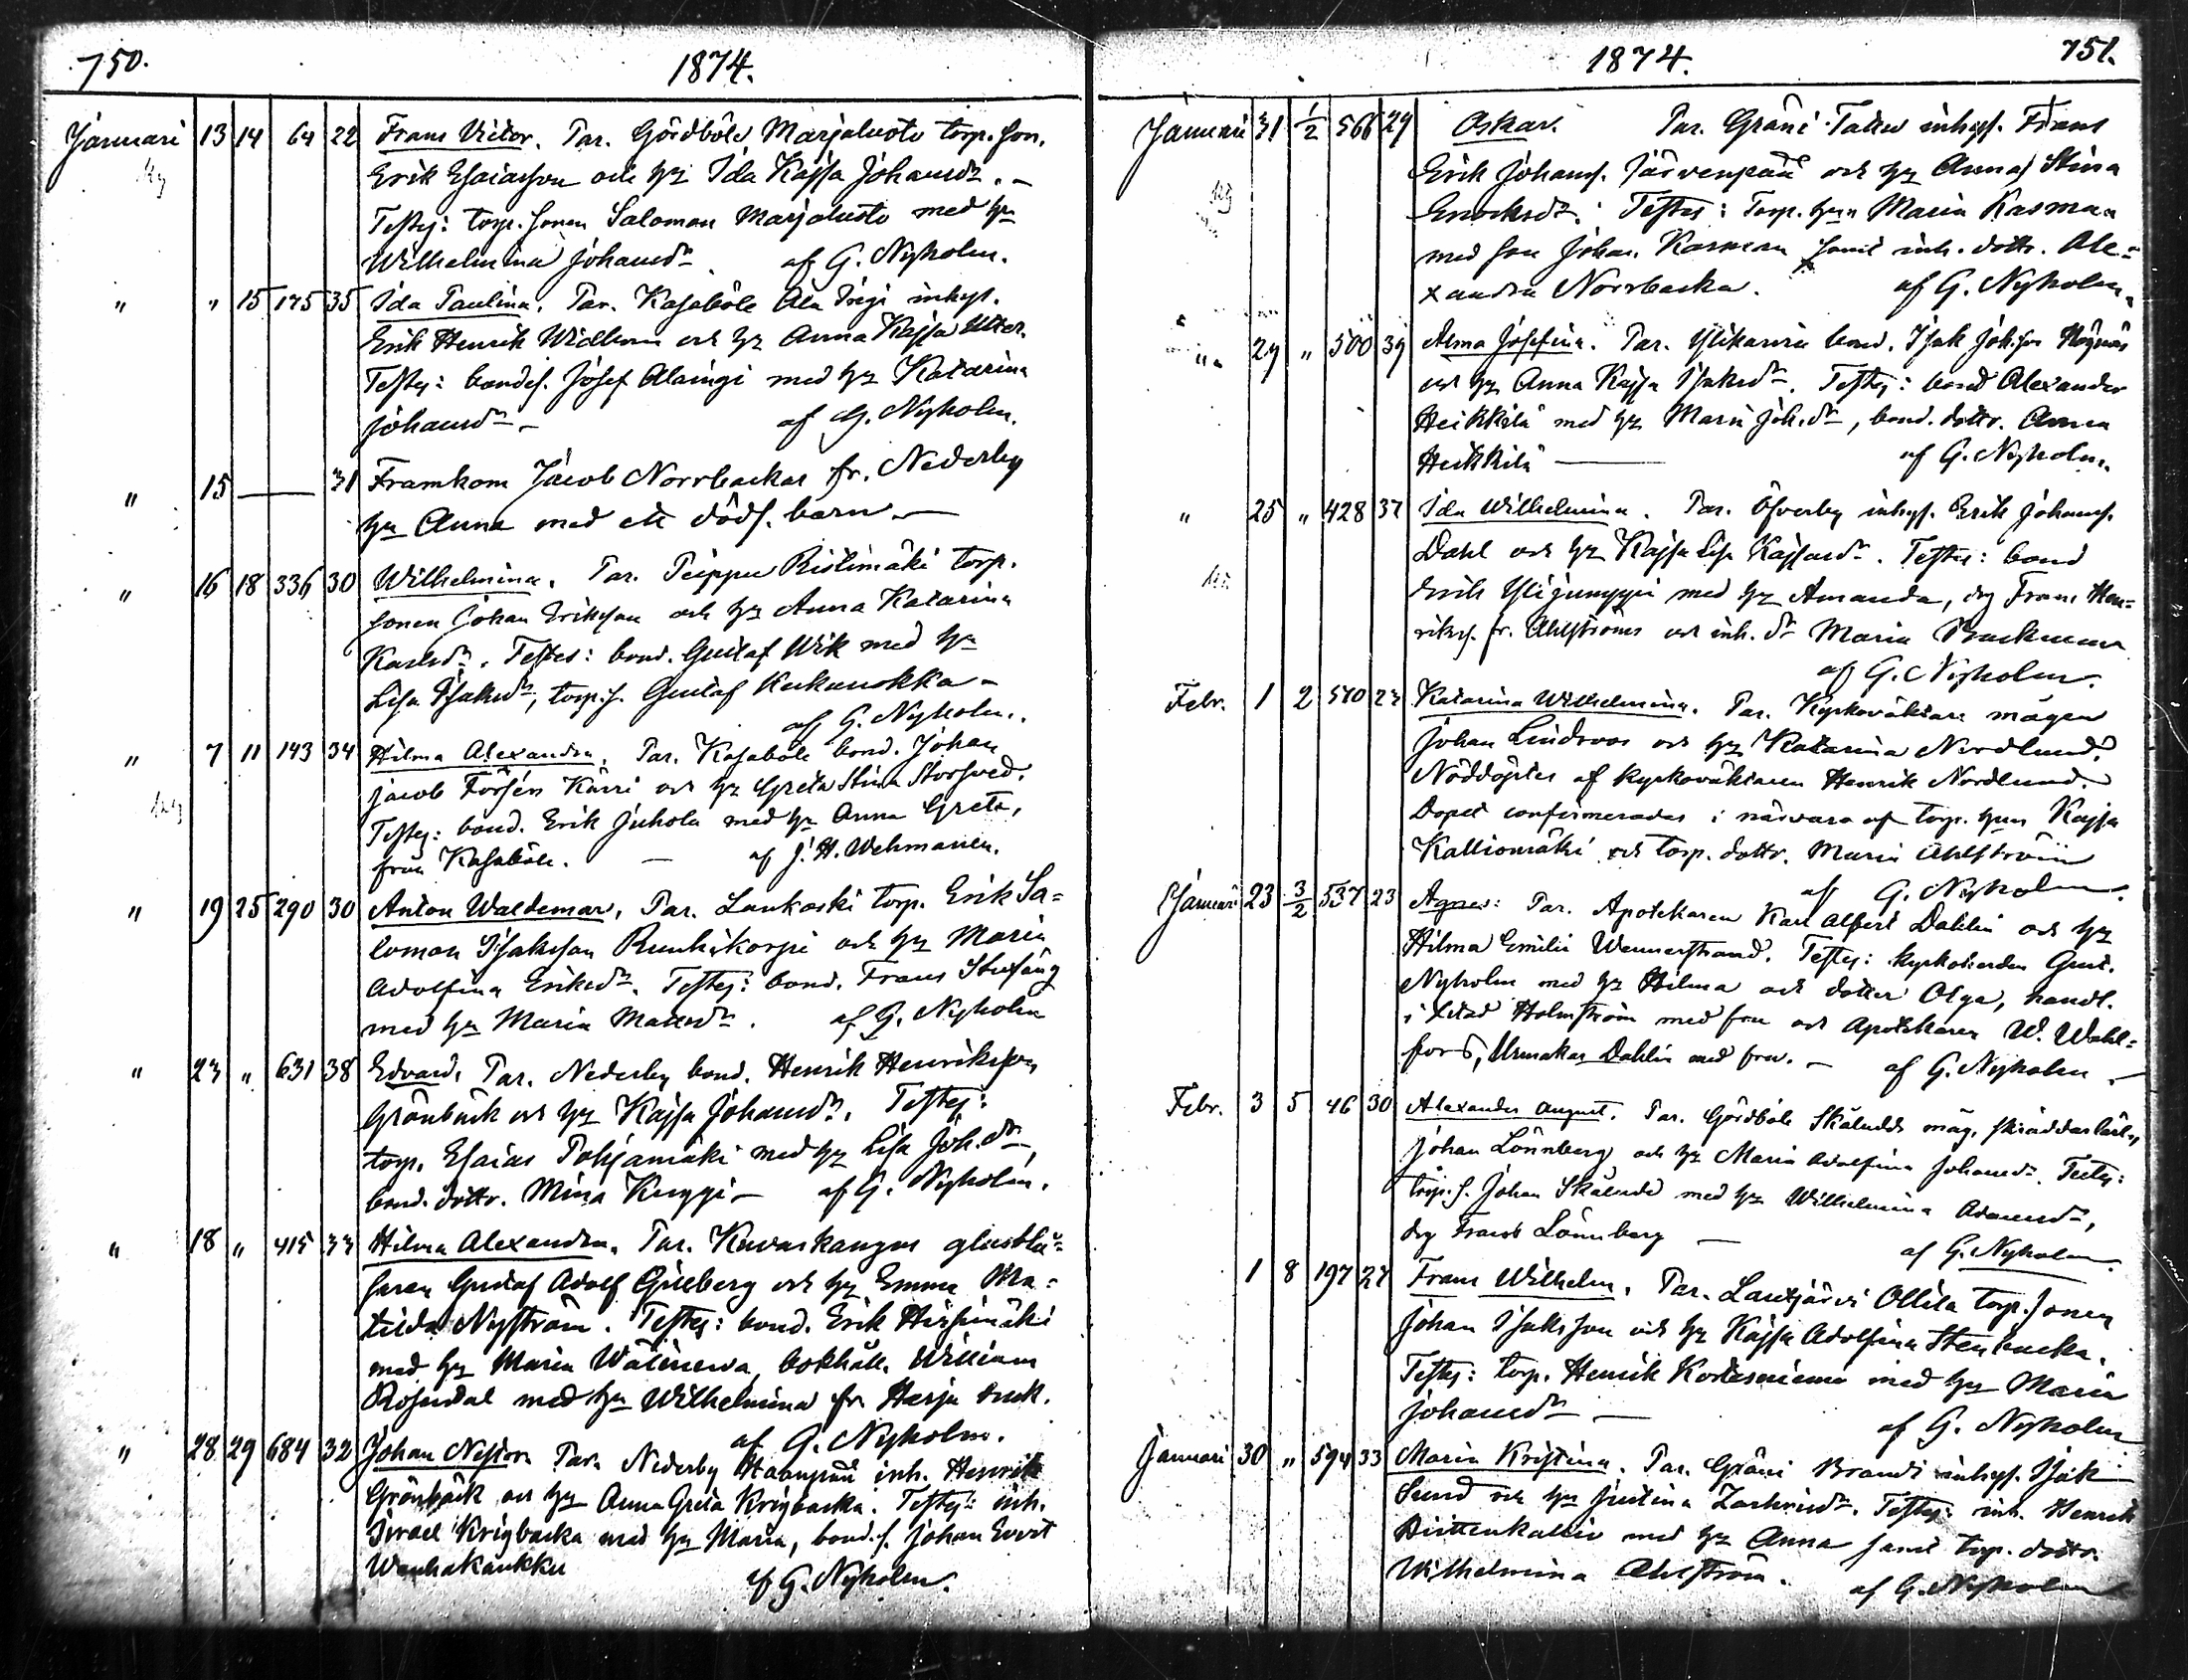 750. 1874.
Januari 13 14 64 22 Frans Victor. Par. Gördböle Marjaluoto torp. son.
Erik Esaiasson och hu Ida Kajsa Johansdr. –
Testes: torp. sonen Salomon Marjaluoto med hu
Wilhelmina Johansdr. af G. Nyholm.
" " 15 175 35 Ida Paulina. Par. Kasaböle Ala inhys.
Erik Henrik Widbom och hu Anna Kajsa
Testes: bondes. Josef Alaingi med hu Katarina
Johansdr – af G. Nyholm.
" 15 — 31 Framkom Jacob Norrbackas fr. Nederby
hu Anna med ett dödf. barn. —
" 16 18 336 30 Wilhelmina. Par. Peippu Ristimäki torp.
sonen Johan Eriksson och hu Anna Katarina
Karlsdr. Testes: bond. Gustaf Wik med hu
Lisa Isaksdr, torp. s. Gustaf Kukunokka –
af G. Nyholm.
" 7 11 143 34 Hilma Alexandra. Par. Kasaböle bond. Johan
Jacob Forsén Karri och hu Greta Stina Storsved.
Testes: bond. Erik Juhola med hu Anna Greta,
från Kasaböle. — af J. H. Wehmanen.
" 19 25 290 30 Anton Waldemar. Par. Lankoski torp. Erik Sa=
lomon Isaksson Ruuhikorpi och hu Maria
Adolfina Eriksdr. Testes: bond. Frans Stusäng
med hu Maria Matsdr. af G. Nyholm
" 23 " 631 38 Edvard. Par. Nederby bond. Henrik Henriksson
Grönbäck och hu Kajsa Johansdr. Testes:
torp. Esaias Pohjamäki med hu Lisa Joh.dr –,
bond. dottr. Mina Knyppi – af G. Nyholm.
" 18 " 415 33 Hilma Alexandra. Par. Kuvaskangas glasblå=
saren Gustaf Adolf Gilleberg och hu Emma Ma=
tilda Nyström. Testes: bond. Erik Hirsimäki
med hu Maria bokhåll. William
Rosendal med hu Wilhelmina fr. Harju bruk.
af G. Nyholm.
" 28 29 684 32 Johan Nestor. Par. Nederby Haanpää inh. Henrik
Grönbäck och hu Anna Greta Krigbacka. Testes: inh.
Israel Krigbacka med hu Maria, bond. s. Johan Evert
Wanhakaukku af G. Nyholm.
1874. 751.
Januari 31 1/2 566 29 Oskar. Par. Gräni Takku inhys. Frans
Erik Johans. Järvenpää och hu Anna Stina
Enocksdr. Testes: Torp. hun Maria Kasman
med son Johan Kasman samt inh. dottr. Ale=
xandra Norrbacka. af G. Nyholm.
" 29 " 500 39 Alma Josefina. Par. Ylikarvia bond. Isak Joh.son Högnäs
och hu Anna Kajsa Isaksdr. Testes: bond Alexander
Heikkilä med hu Maria Joh.dr, bond. dottr. Anna
Heikkilä — af G. Nyholm.
" 25 " 428 37 Ida Wilhelmina. Par. Öfverby inhys. Erik Johans.
Dahl och hu Kajsa Lisa Kajsasdr. Testes: bond
Erik Ylijumppi med hu Amanda, drg Frans Hen=
riks. fr. Ahlströms och inh. dr Maria Brackman
af G. Nyholm.
Febr. 1 2 540 23 Katarina Wilhelmina. Par. Kyrkoväktare mågen
Johan Lindroos och hu Katarina Nordlund.
Nöddöptes af kyrkoväktaren Henrik Nordlund.
Dopet confirmerades i närvaro af torp. hun Kajsa
Kalliomäki och torp. dottr. Maria Ahlström
af G. Nyholm.
Januari 23 3/2 537 23 Agnes: Par. Apotekaren Karl Albert Dahlin och hu
Hilma Emilia Wennerstrand. Testes: kyrkoherden Gust.
Nyholm med hu Hilma och dotter Olga, handl.
i X.stad Holmström med fru och Apotekaren W. Wahl=
fors, Urmakar Dahlin med fru. – af G. Nyholm –
Febr. 3 5 46 30 Alexander August. Par. Gördböle Skäludds måg, skräddarlärl.
Johan Lönnberg och hu Maria Adolfina Johansdr. Testes:
torp. s. Johan Skäludd med hu Wilhelmina Adamsdr,
drg Frans Lönnberg — af G. Nyholm.
1 8 197 27 Frans Wilhelm. Par. Lautjärvi Ollila torp. sonen
Johan Isaksson och hu Kajsa Adolfina Stenbacka.
Testes: torp. Henrik Kortesniemi med hu Maria
Johansdr — af G. Nyholm
Januari 30 " 594 33 Maria Kristina. Par. Gräni Brandt inhys. Isak
Sund och hu Justina Zachrisdr. Testes: inh. Henrik
Riittenkallio med hu Anna samt torp. dottr.
Wilhelmina Ahlström. af G. Nyholm